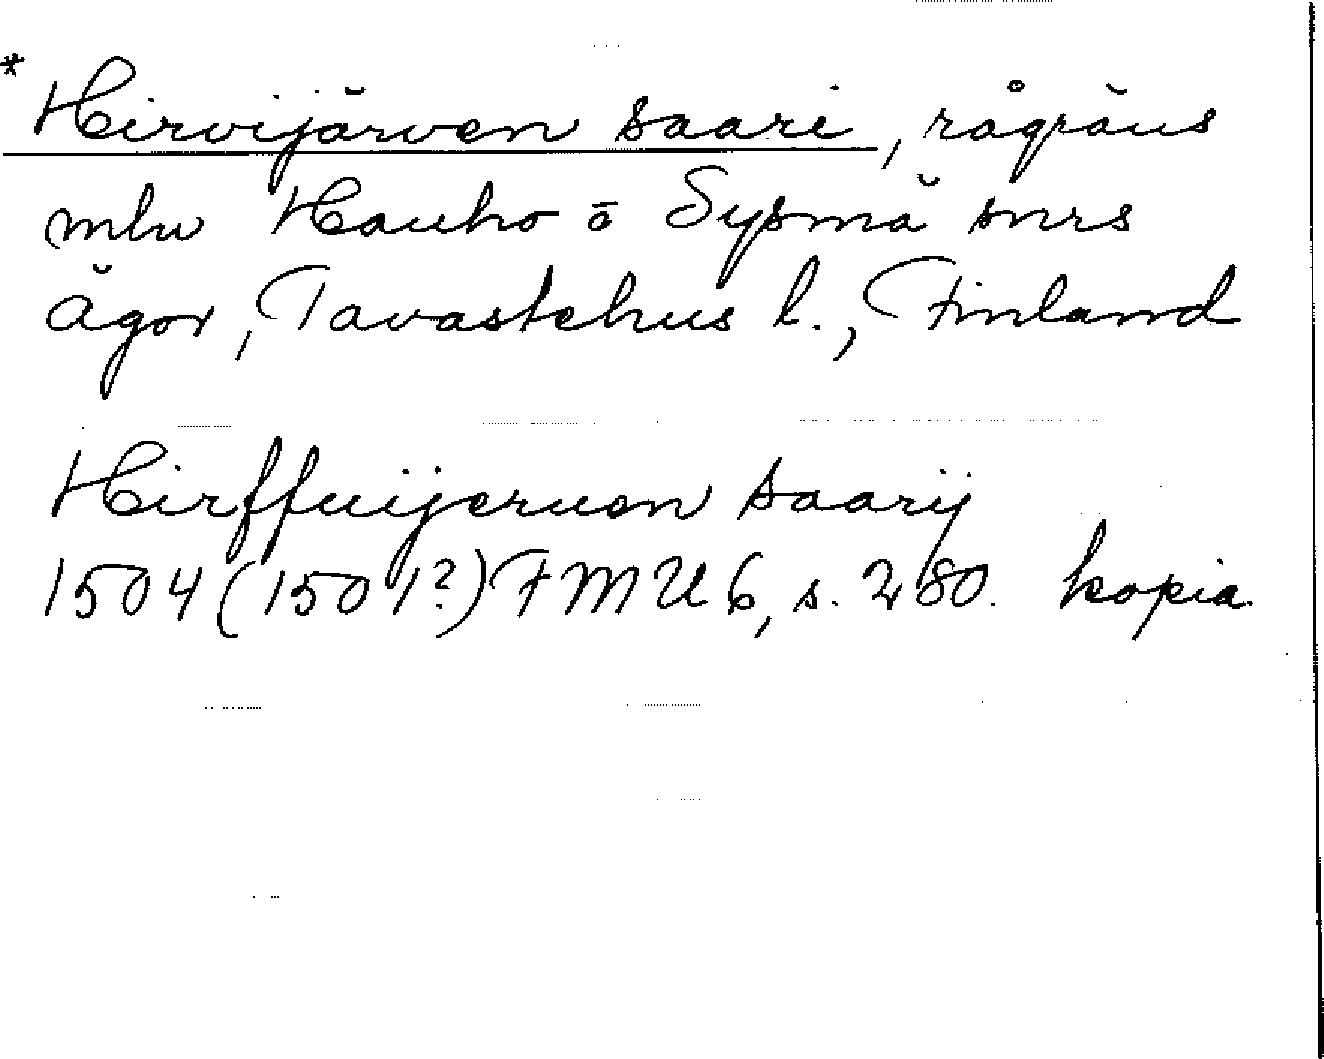 * Hirvijärven saari, rågräns
mln Hauho o Sysmä snrs
ägor, Tavastehus l., Finland
Hirffuijeruen saarij
1504 (1501?) FMU 6, s. 280. kopia.